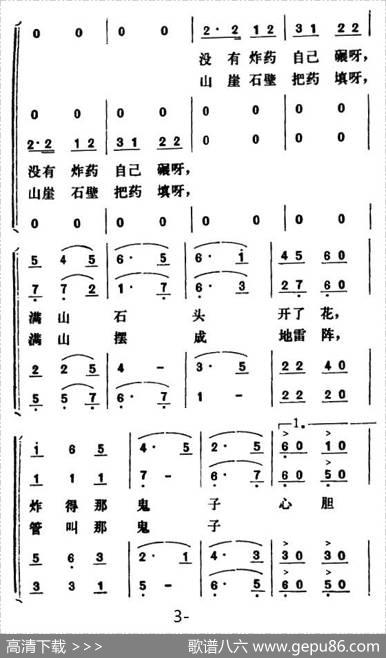 0 0 0 0 2·2 12 31 22
没有炸药自己碾呀,
山崖石壁把药填呀,
0 0 0 0 0 0 0 0
2·2 12 31 22 0 0 0 0
没有炸药自己碾呀,
山崖石壁把药填呀,
0 0 0 0 0 0 0 0
5 4 5 6· 5 6· i 45 60
7 7 2 1· 7 6· 3 27 60
满山石头开了花,
满山摆成地雷阵,
2 2 5 4 - 3· 5 22 40
5 5 7 6· 7 1 - 22 20
1.
i 6 5 4· 5 2· 5 60 10
1 1 1 7 - 6· 7 60 50
炸得那鬼子心胆
管叫那鬼子
5 6 3 2· 1 4· 3 30 30
3 3 1 5 - 6· 5 60 50
3-
高清下载 >>> 歌谱八六 www.gepu86.com